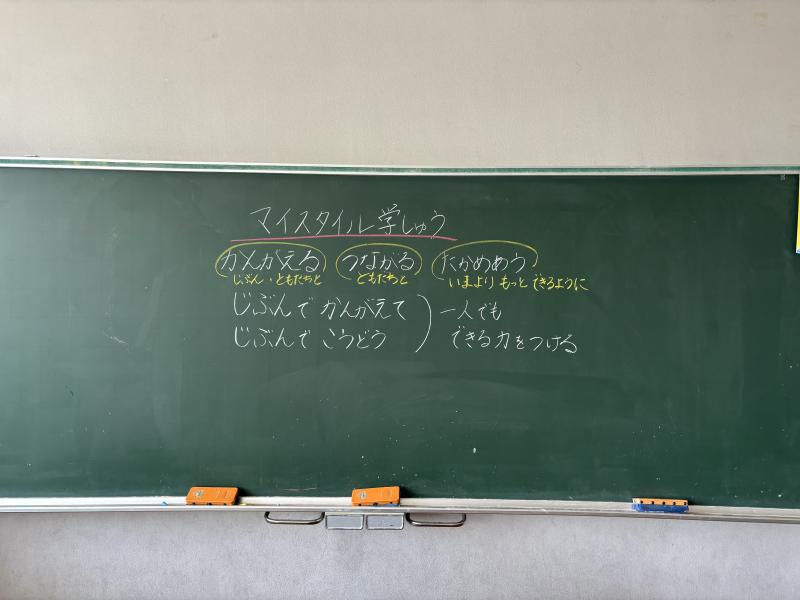 マイスタイル学しゅう
かんがえる つながる たかめあう
じぶん・ともだちと ともだちと いまより もっと できるように
じぶんで かんがえて 一人でも
じぶんで こうどう できる力をつける